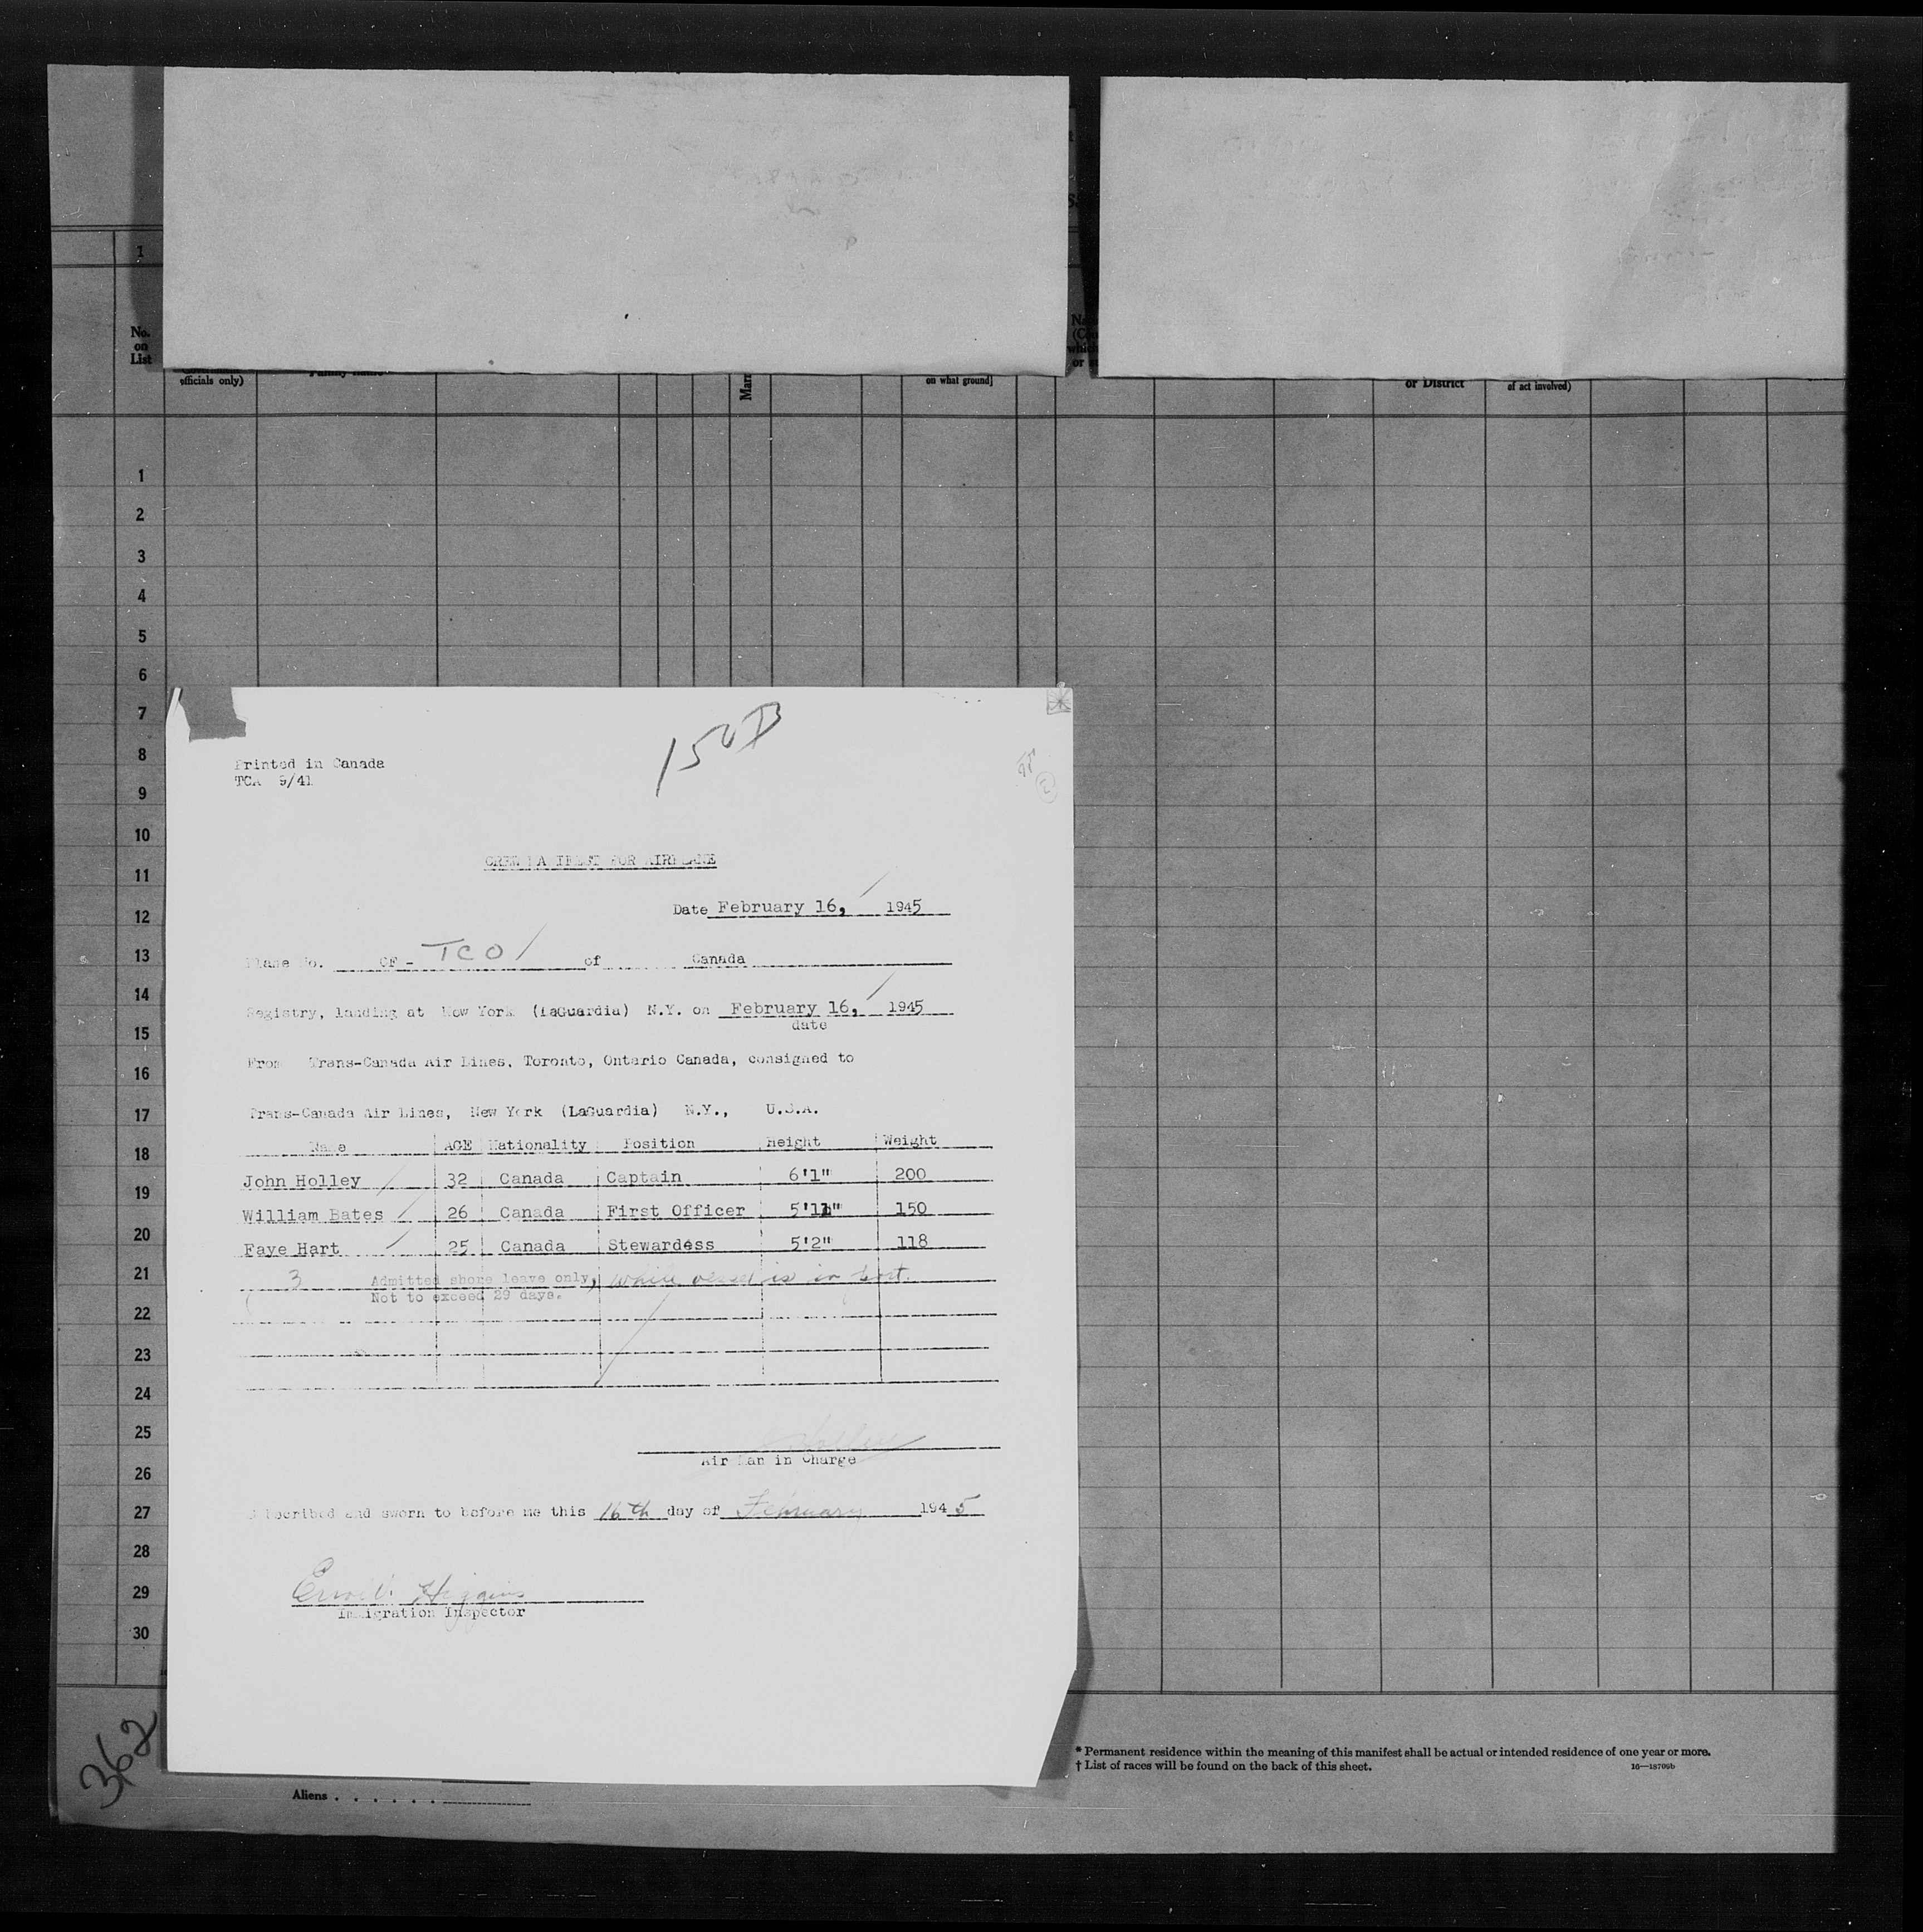 1
No.
on
List
officials only)
Family name
Marr
on what ground]
or District
of act involved)
1
2
3
4
5
6
7
8
9
10
11
12
13
14
15
16
17
18
19
20
21
22
23
24
25
26
27
28
29
30
150B
Printed in Canada
TCA 9/41
CREW MANIFEST FOR AIRPLANE
Date February 16, 1945
Plane No. CF- TCO of Canada
Registry, landing at New York (LaGuardia) N.Y. on February 16, 1945
date
From Trans-Canada Air Lines, Toronto, Ontario Canada, consigned to
Trans-Canada Air Lines, New York (LaGuardia) N.Y., U.S.A.
Name AGE Nationality Position Height Weight
John Holley 32 Canada Captain 6'1" 200
William Bates 26 Canada First Officer 5'11" 150
Faye Hart 25 Canada Stewardess 5'2" 118
3 Admitted shore leave only, while vessel is in port.
Not to exceed 29 days.
Air Man in Charge
Subscribed and sworn to before me this 16th day of February 1945
Higgins
Immigration Inspector
362
Aliens . . . . . .
* Permanent residence within the meaning of this manifest shall be actual or intended residence of one year or more.
† List of races will be found on the back of this sheet.
16—18709b